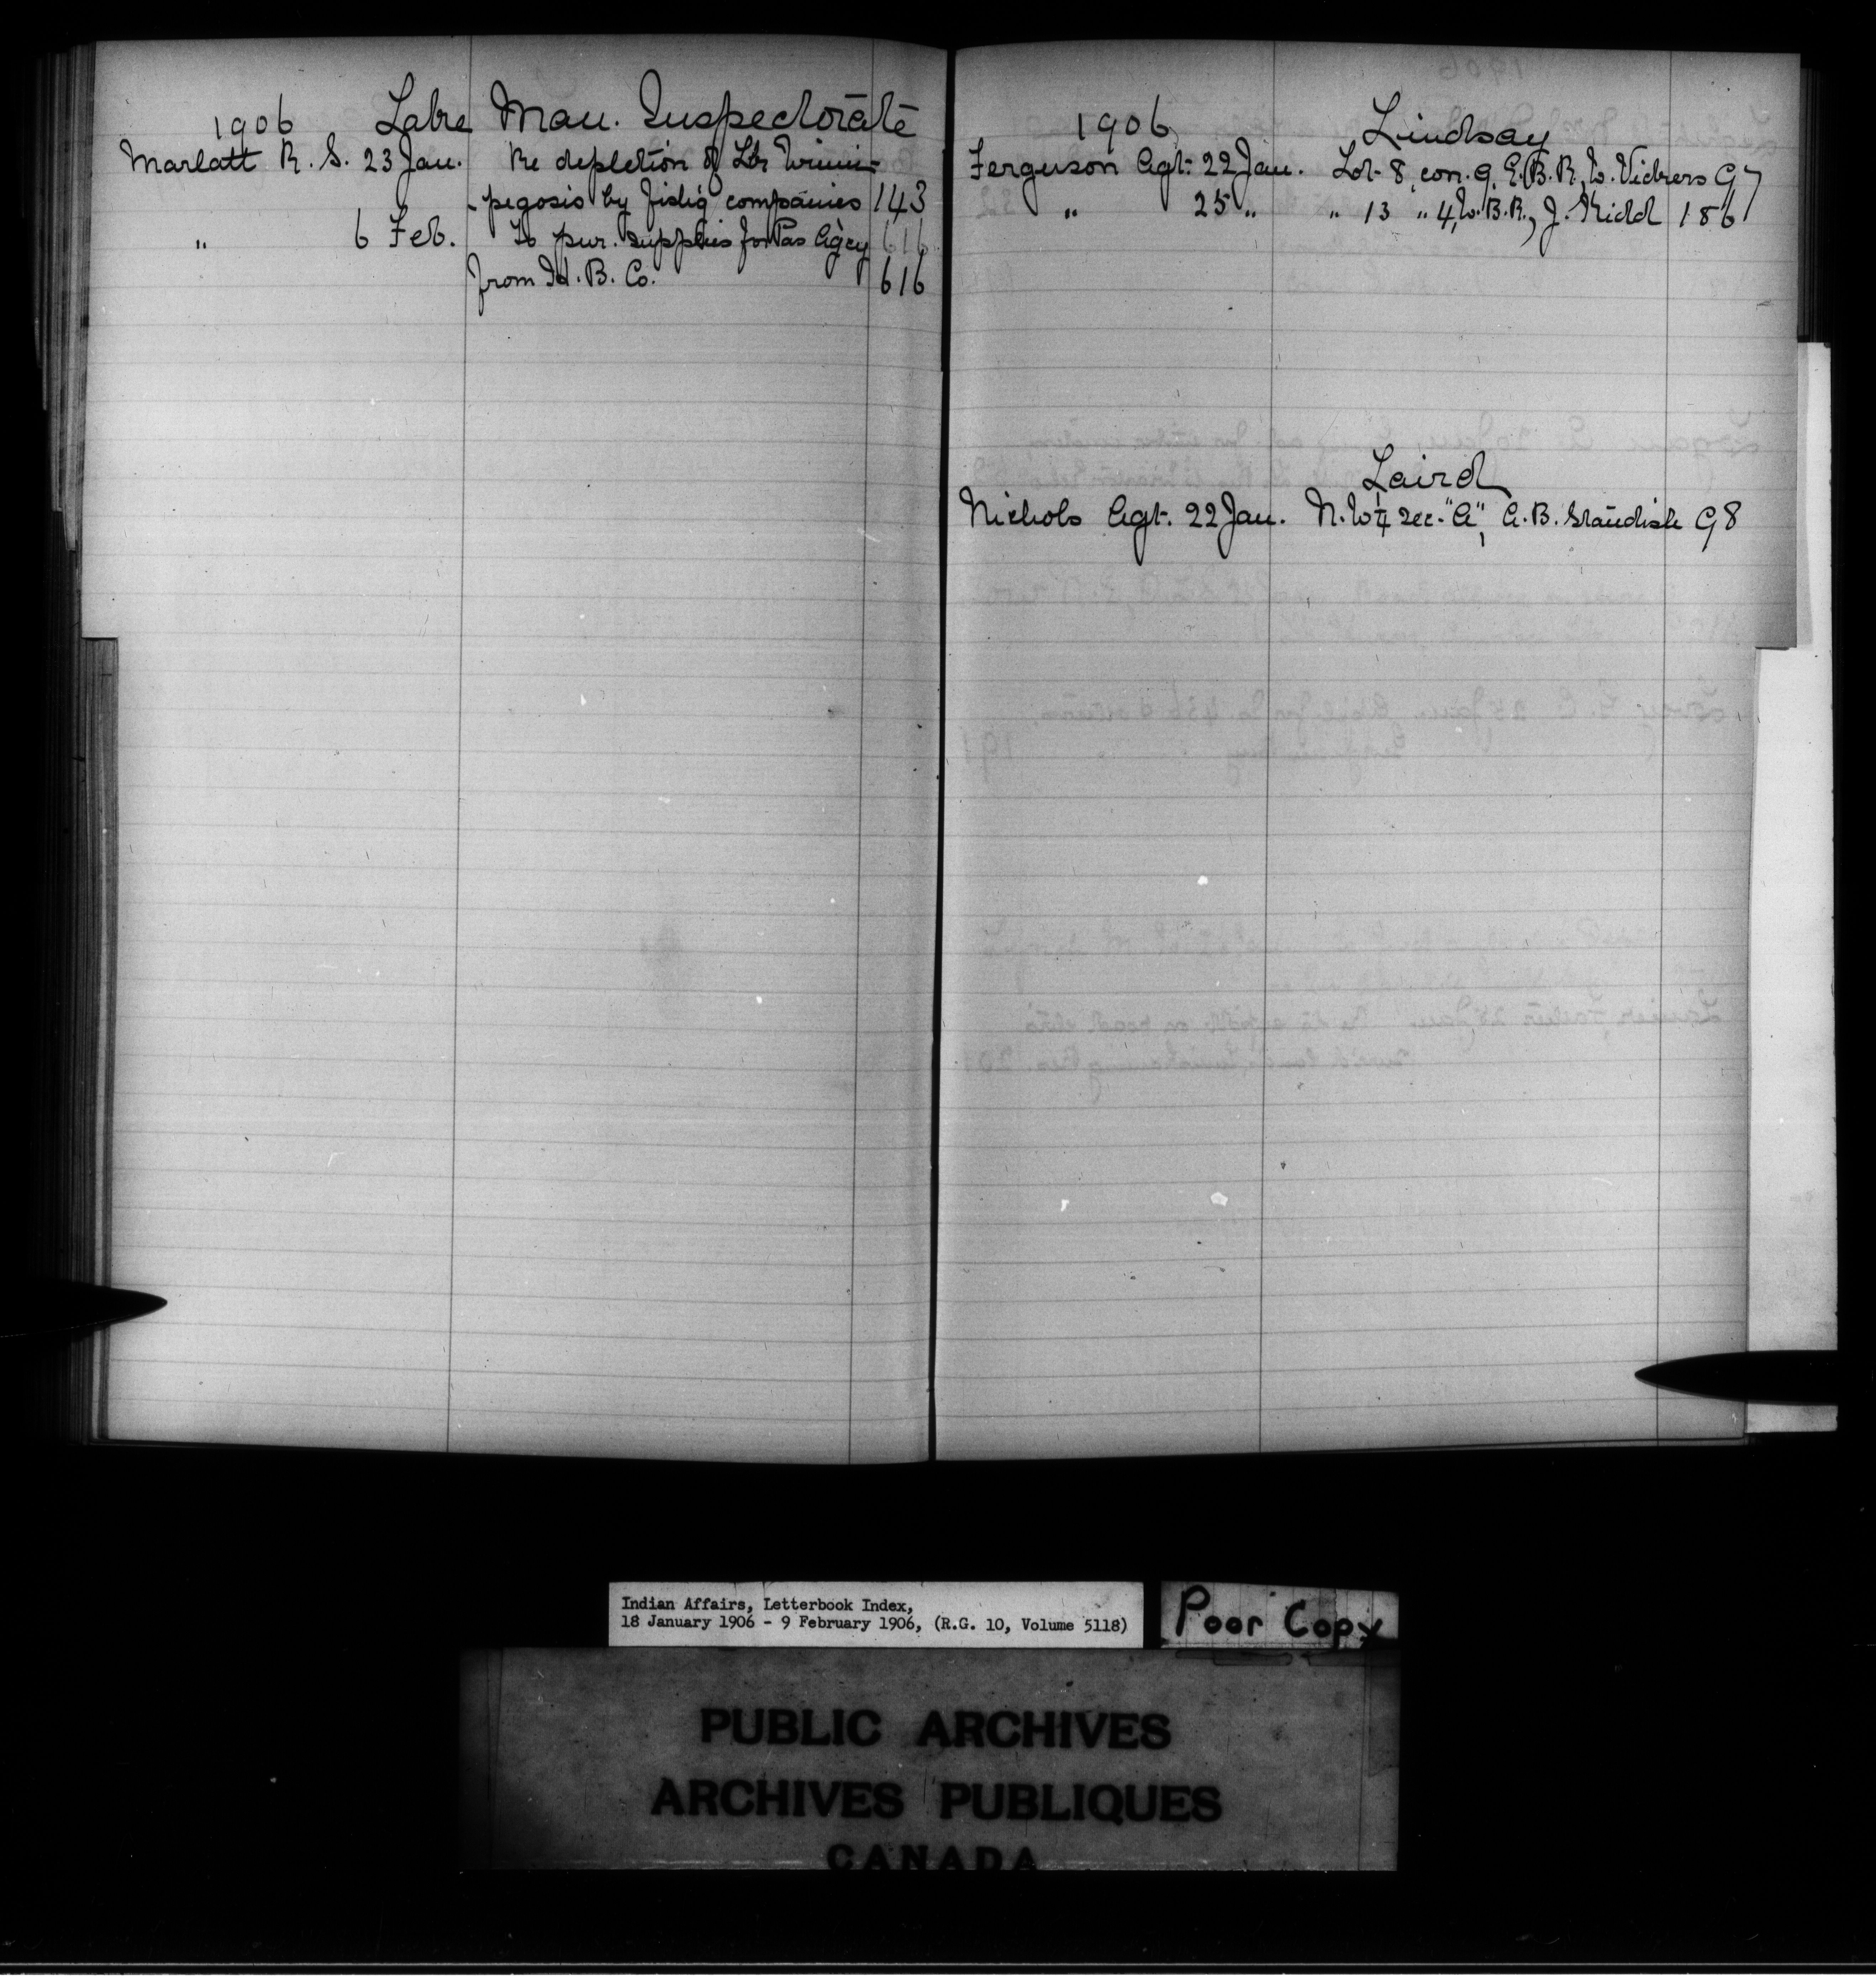 1906 Lake Man. Inspectorate
Marlatt R. S. 23 Jan. Re depletion of Lke Winni-
-pegosis by fishg companies 143
" 6 Feb. To pur. supplies for Pas Agcy 616
from H. B. Co. 616
1906 Lindsay
Ferguson Agt. 22 Jan. Lot 8, con. 9, E.B.R., W. Vickers 97
" 25 " " 13 " 4, W.B.R., J. Kidd 186
Laird
Nichols Agt. 22 Jan. N.W ¼ sec. "A", A.B. Standish 98
Indian Affairs, Letterbook Index,
18 January 1906 - 9 February 1906, (R.G. 10, Volume 5118)
Poor Copy
PUBLIC ARCHIVES
ARCHIVES PUBLIQUES
CANADA